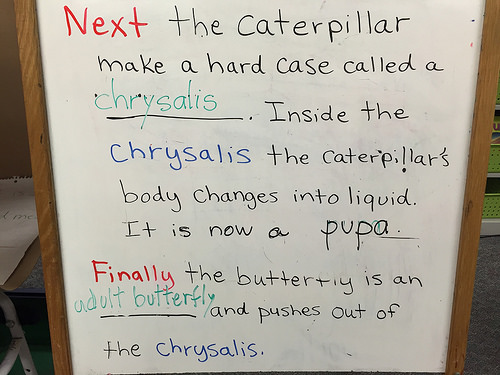 Next the caterpillar
make a hard case called a
chrysalis. Inside the
Chrysalis the caterpillar's
body changes into liquid.
It is now a pupa.
Finally the butterfly is an
adult butterfly and pushes out of
the chrysalis.